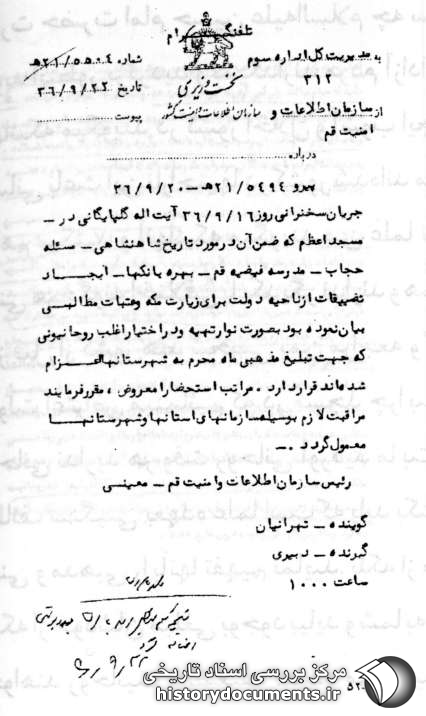 تلفنگرام
به مدیریت کل اداره سوم
۳۱۲
شماره ۲۱/۵۵۰۴هـ
نخست وزیری
تاریخ ۳۶/۹/۲۲
از سازمان اطلاعات و
امنیت قم
سازمان اطلاعات و امنیت کشور
پیوست
درباره
پیرو ۲۱/۵۴۹۴هـ – ۳۶/۹/۲۰
جریان سخنرانی روز ۳۶/۹/۱۶ آیت اله گلپایگانی در –
مسجد اعظم که ضمن آن در مورد تاریخ شاهنشاهی – مسئله
حجاب – مدرسه فیضیه قم – بهره بانکها – ایجاد
تضییقات از ناحیه دولت برای زیارت مکه وعتبات مطالبی
بیان نموده بود بصورت نوار تهیه ودر اختیار اغلب روحانیونی
که جهت تبلیغ مذهبی ماه محرم به شهرستانها اعزام
شده اند قرار دارد . مراتب استحضارا معروض ، مقرر فرمایند
مراقبت لازم بوسیله سازمانهای استانها وشهرستانها
معمول گردد . –
رئیس سازمان اطلاعات وامنیت قم – معینی
گوینده – تهرانیان
گیرنده – دبیری
ساعت ۱۰۰۰
۹/۲۲
مرکز بررسی اسناد تاریخی
historydocuments.ir